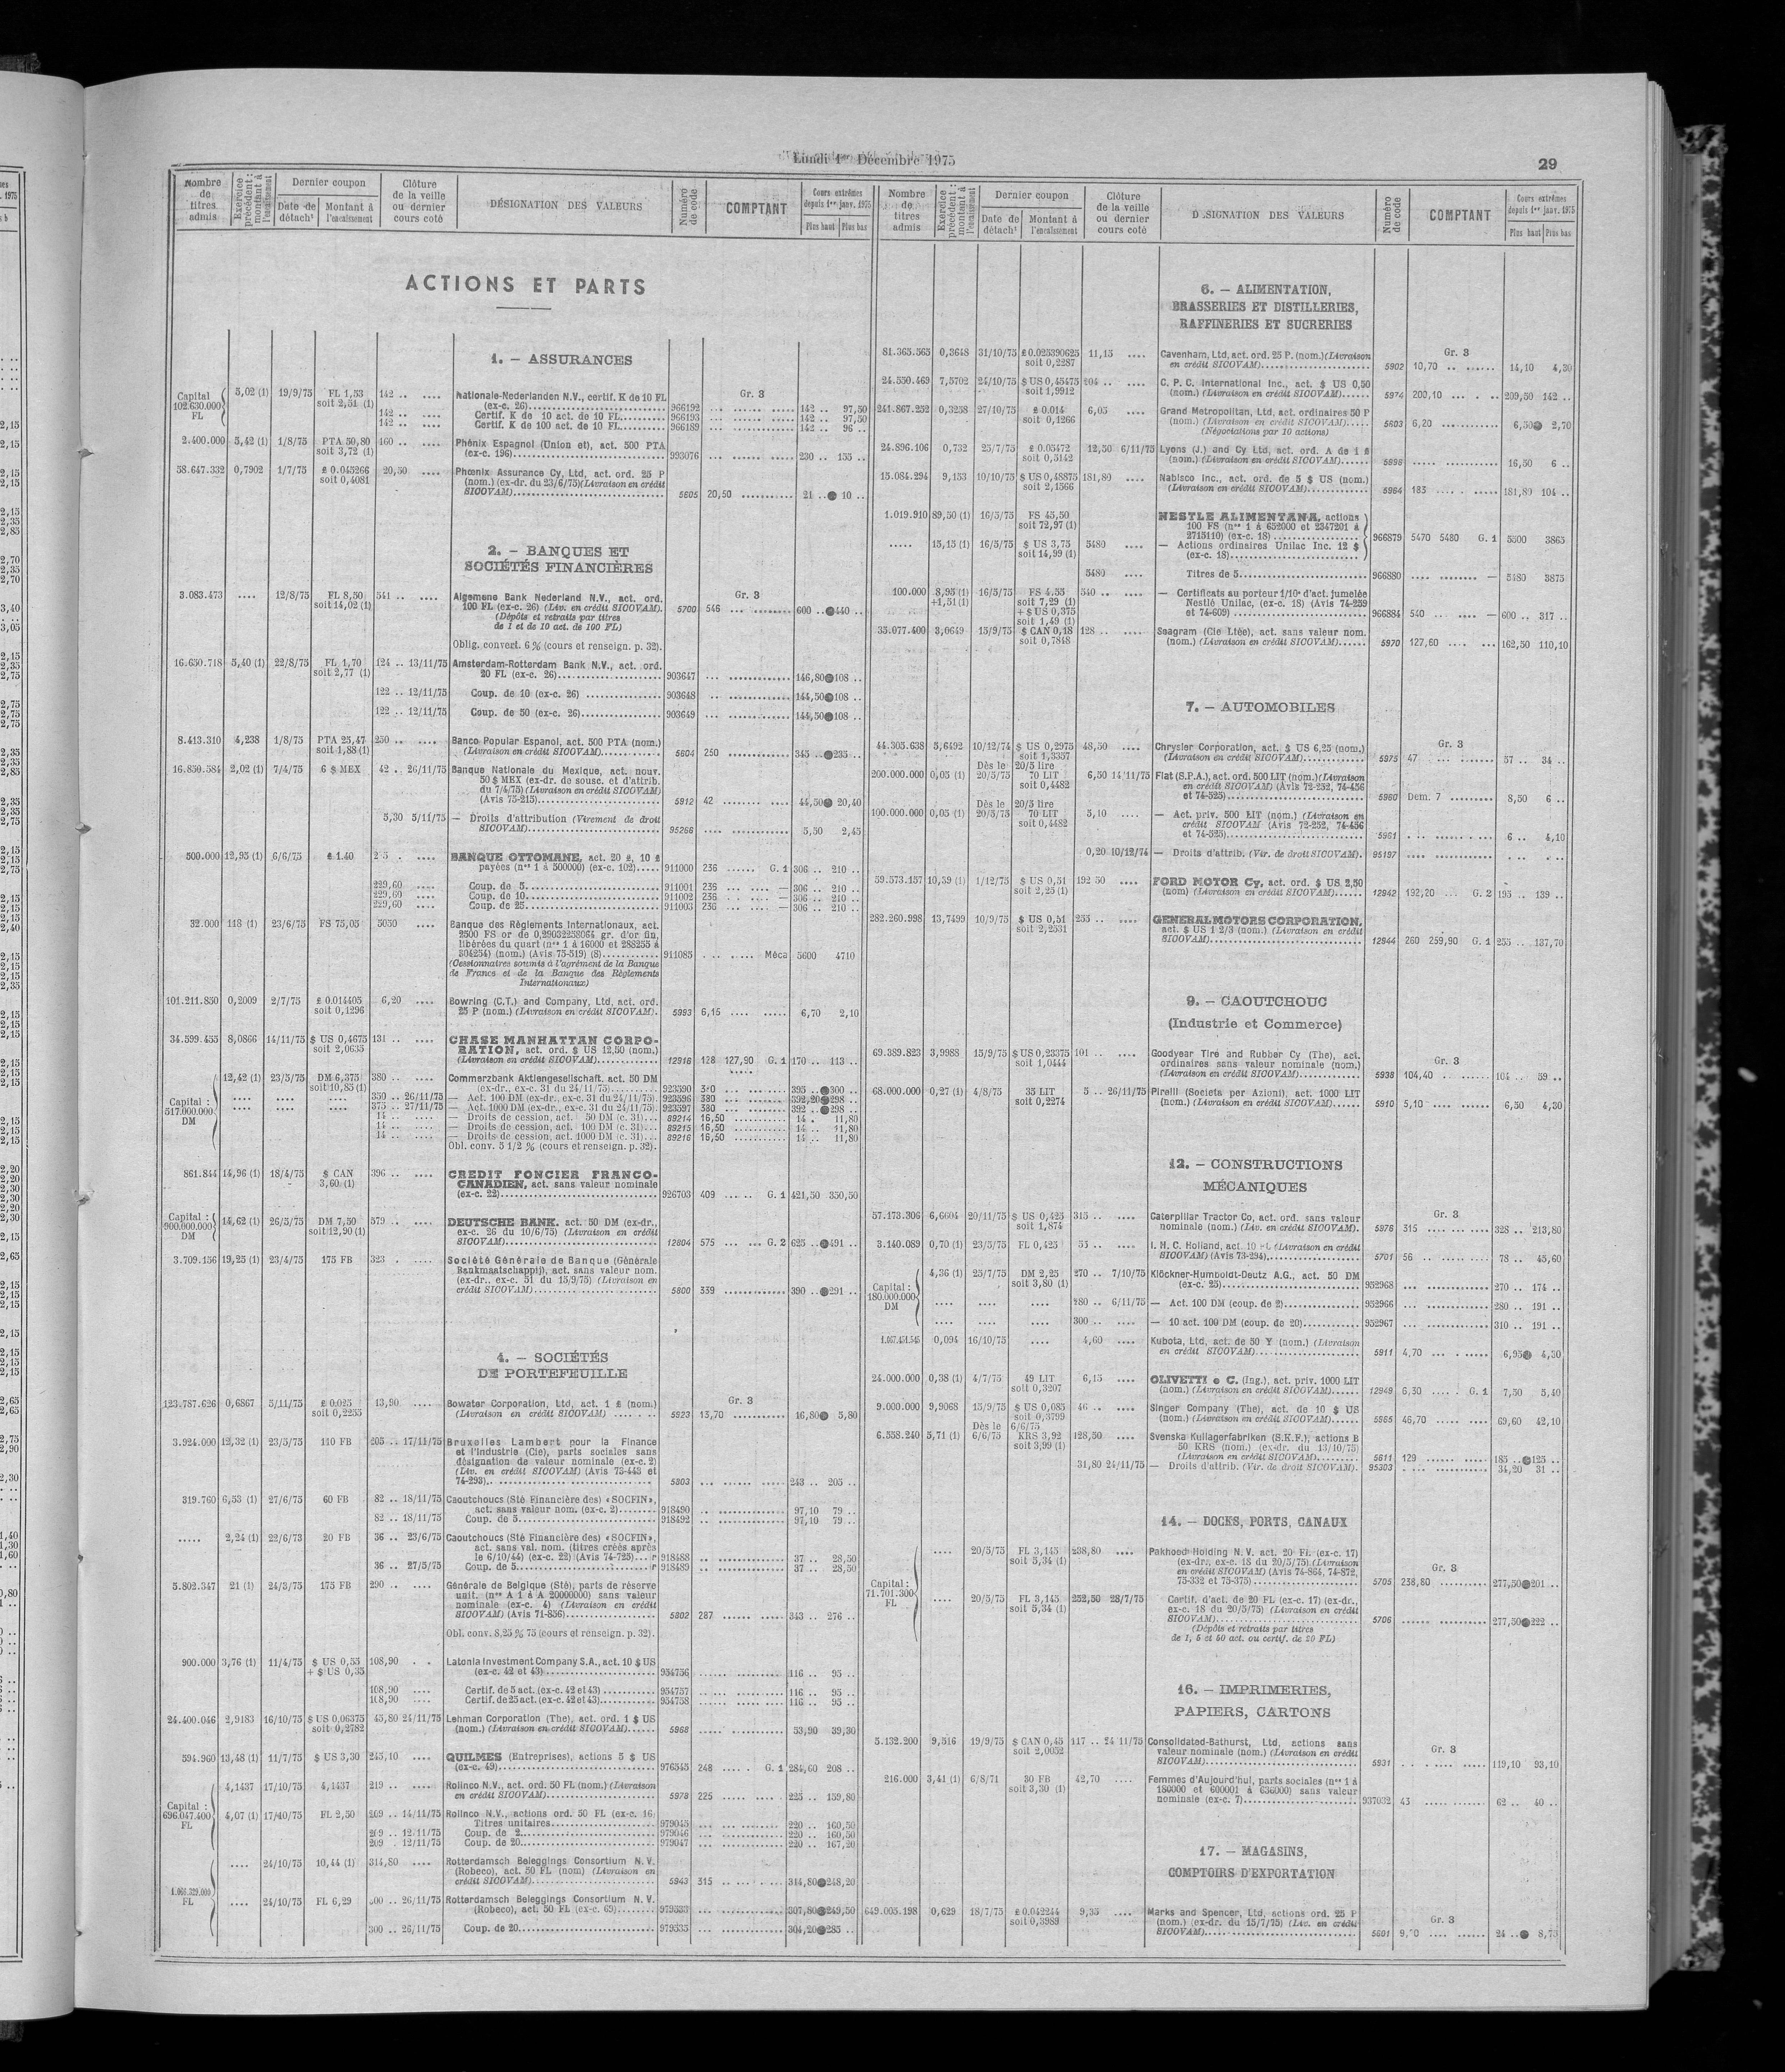 Lundi 1er Décembre 1975
29
Nombre de titres admis
Exercice précédent : montant à l'encaissement
Dernier coupon
Date de détacht
Montant à l'encaissement
Clôture de la veille ou dernier cours coté
DÉSIGNATION DES VALEURS
Numéro de code
COMPTANT
Cours extrêmes depuis 1er janv. 1975
Plus haut
Plus bas
ACTIONS ET PARTS
1. — ASSURANCES
Gr. 3
Capital 102.630.000 FL
5,02 (1) 19/9/75 FL 1,53 142 .. .... Nationale-Nederlanden N.V., certif. K de 10 FL
soit 2,51 (1) (ex-c. 26) 966192 142 .. 97,50
142 .. .... Certif. K de 10 act. de 10 FL 966193 142 .. 97,50
142 .. .... Certif. K de 100 act. de 10 FL 966189 142 .. 96 ..
2.400.000 5,42 (1) 1/8/75 PTA 50,80 160 .. .... Phénix Espagnol (Union et), act. 500 PTA
soit 3,72 (1) (ex-c. 196) 993076 230 .. 155 ..
58.647.332 0,7902 1/7/75 £ 0.045266 20,50 .... Phœnix Assurance Cy, Ltd, act. ord. 25 P
soit 0,4081 (nom.) (ex-dr. du 23/6/75) (Livraison en crédit
SICOVAM) 5605 20,50 21 .. 10 ..
2. — BANQUES ET
SOCIÉTÉS FINANCIÈRES
Gr. 3
3.083.473 .... 12/8/75 FL 8,50 541 .. .... Algemene Bank Nederland N.V., act. ord.
soit 14,02 (1) 100 FL (ex-c. 26) (Liv. en crédit SICOVAM). 5700 546 600 .. 440 ..
(Dépôts et retraits par titres
de 1 et de 10 act. de 100 FL)
Oblig. convert. 6 % (cours et renseign. p. 32).
16.630.718 5,40 (1) 22/8/75 FL 1,70 124 .. 13/11/75 Amsterdam-Rotterdam Bank N.V., act. ord.
soit 2,77 (1) 20 FL (ex-c. 26) 903647 146,80 108 ..
122 .. 12/11/75 Coup. de 10 (ex-c. 26) 903648 144,50 108 ..
122 .. 12/11/75 Coup. de 50 (ex-c. 26) 903649 144,50 108 ..
8.413.310 4,238 1/8/75 PTA 25,47 250 .. .... Banco Popular Espanol, act. 500 PTA (nom.)
soit 1,88 (1) (Livraison en crédit SICOVAM) 5604 250 345 .. 235 ..
16.850.584 2,02 (1) 7/4/75 6 $ MEX 42 .. 26/11/75 Banque Nationale du Mexique, act. nouv.
50 $ MEX (ex-dr. de sousc. et d'attrib.
du 7/4/75) (Livraison en crédit SICOVAM)
(Avis 75-215) 5912 42 44,50 20,40
5,30 5/11/75 — Droits d'attribution (Virement de droit
SICOVAM) 95266 5,50 2,45
500.000 12,95 (1) 6/6/75 £ 1.40 BANQUE OTTOMANE, act. 20 £, 10 £
payées (nos 1 à 500000) (ex-c. 102) 911000 236 G. 1 306 .. 210 ..
229,60 .... Coup. de 5 911001 236 — 306 .. 210 ..
229,60 .... Coup. de 10 911002 236 — 306 .. 210 ..
229,60 .... Coup. de 25 911003 236 — 306 .. 210 ..
32.000 148 (1) 23/6/75 FS 75,05 5050 .... Banque des Règlements Internationaux, act.
2500 FS or de 0,29032258064 gr. d'or fin,
libérées du quart (nos 1 à 16000 et 288255 à
304254) (nom.) (Avis 75-519) (8) 911085 Méca 5600 4710
(Cessionnaires soumis à l'agrément de la Banque
de France et de la Banque des Règlements
Internationaux)
101.211.850 0,2009 2/7/75 £ 0.014405 6,20 .... Bowring (C.T.) and Company, Ltd, act. ord.
soit 0,1296 25 P (nom.) (Livraison en crédit SICOVAM). 5993 6,15 6,70 2,10
34.599.455 8,0866 14/11/75 $ US 0,4675 131 .. .... CHASE MANHATTAN CORPO-
soit 2,0635 RATION, act. ord. $ US 12,50 (nom.)
(Livraison en crédit SICOVAM) 12916 128 127,90 G. 1 170 .. 113 ..
Capital : 517.000.000 DM
12,42 (1) 23/5/75 DM 6,375 380 .. .... Commerzbank Aktiengesellschaft, act. 50 DM
soit 10,85 (1) (ex-dr., ex-c. 31 du 24/11/75) 923590 380 395 .. 300 ..
350 .. 26/11/75 — Act. 100 DM (ex-dr., ex-c. 31 du 24/11/75). 923596 380 392,20 298 ..
375 .. 27/11/75 — Act. 1000 DM (ex-dr., ex-c. 31 du 24/11/75). 923597 380 392 .. 298 ..
14 .. .... — Droits de cession, act. 50 DM (c. 31) 89214 16,50 14 .. 11,80
14 .. .... — Droits de cession, act. 100 DM (c. 31) 89215 16,50 14 .. 11,80
14 .. .... — Droits de cession, act. 1000 DM (c. 31) 89216 16,50 14 .. 11,80
Obl. conv. 5 1/2 % (cours et renseign. p. 32).
861.844 14,96 (1) 18/4/75 $ CAN 396 .. .... CREDIT FONCIER FRANCO-
3,60 (1) CANADIEN, act. sans valeur nominale
(ex-c. 22) 926703 409 G. 1 421,50 350,50
Capital : 900.000.000 DM
14,62 (1) 26/5/75 DM 7,50 579 .. .... DEUTSCHE BANK, act. 50 DM (ex-dr.,
soit 12,90 (1) ex-c. 26 du 10/6/75) (Livraison en crédit
SICOVAM) 12804 575 G. 2 625 .. 491 ..
3.709.156 19,25 (1) 23/4/75 175 FB 323 .. .... Société Générale de Banque (Générale
Bankmaatschappij), act. sans valeur nom.
(ex-dr., ex-c. 51 du 15/9/75) (Livraison en
crédit SICOVAM) 5800 339 390 .. 291 ..
4. — SOCIÉTÉS
DE PORTEFEUILLE
Gr. 3
123.787.626 0,6867 5/11/75 £ 0.025 13,90 .... Bowater Corporation, Ltd, act. 1 £ (nom.)
soit 0,2255 (Livraison en crédit SICOVAM) 5923 13,70 16,80 5,80
3.924.000 12,32 (1) 23/5/75 110 FB 205 .. 17/11/75 Bruxelles Lambert pour la Finance
et l'Industrie (Cie), parts sociales sans
désignation de valeur nominale (ex-c. 2)
(Liv. en crédit SICOVAM) (Avis 75-443 et
74-293) 5803 243 .. 205 ..
319.760 6,53 (1) 27/6/75 60 FB 82 .. 18/11/75 Caoutchoucs (Sté Financière des) «SOCFIN»,
act. sans valeur nom. (ex-c. 2) 918490 97,10 79 ..
82 .. 18/11/75 Coup. de 5 918492 97,10 79 ..
..... 2,24 (1) 22/6/73 20 FB 36 .. 23/6/75 Caoutchoucs (Sté Financière des) «SOCFIN»,
act. sans val. nom. (titres créés après
le 6/10/44) (ex-c. 22) (Avis 74-725) r 918488 37 .. 28,50
36 .. 27/5/75 Coup. de 5 r 918489 37 .. 28,50
5.802.347 21 (1) 24/3/75 175 FB 290 .. .... Générale de Belgique (Sté), parts de réserve
unit. (nos A 1 à A 20000000) sans valeur
nominale (ex-c. 4) (Livraison en crédit
SICOVAM) (Avis 71-856) 5802 287 343 .. 276 ..
Obl. conv. 8,25 % 75 (cours et renseign. p. 32).
900.000 3,76 (1) 11/4/75 $ US 0,55 108,90 Latonia Investment Company S.A., act. 10 $ US
+ $ US 0,35 (ex-c. 42 et 43) 954756 116 .. 95 ..
108,90 .... Certif. de 5 act. (ex-c. 42 et 43) 954757 116 .. 95 ..
108,90 .... Certif. de 25 act. (ex-c. 42 et 43) 954758 116 .. 95 ..
24.400.046 2,9183 16/10/75 $ US 0,06375 45,80 24/11/75 Lehman Corporation (The), act. ord. 1 $ US
soit 0,2782 (nom.) (Livraison en crédit SICOVAM) 5968 53,90 39,30
594.960 13,48 (1) 11/7/75 $ US 3,30 245,10 .... QUILMES (Entreprises), actions 5 $ US
(ex-c. 49) 976545 248 G. 1 284,60 208 ..
Capital : 696.047.400 FL
4,1437 17/10/75 4,1437 219 .. .... Rolinco N.V., act. ord. 50 FL (nom.) (Livraison
en crédit SICOVAM) 5978 225 225 .. 159,80
4,07 (1) 17/10/75 FL 2,50 209 .. 14/11/75 Rolinco N.V., actions ord. 50 FL (ex-c. 16)
Titres unitaires 979045 220 .. 160,50
209 .. 12/11/75 Coup. de 2 979046 220 .. 160,50
209 . 12/11/75 Coup. de 20 979047 220 .. 167,20
1.066.329.000 FL
.... 24/10/75 10,44 (1) 314,80 .... Rotterdamsch Beleggings Consortium N.V.
(Robeco), act. 50 FL (nom) (Livraison en
crédit SICOVAM) 5943 315 314,80 248,20
.... 24/10/75 FL 6,29 300 .. 26/11/75 Rotterdamsch Beleggings Consortium N.V.
(Robeco), act. 50 FL (ex-c. 69) 979333 307,80 249,50
300 .. 26/11/75 Coup. de 20 979335 304,20 285 ..
Nombre de titres admis
Exercice précédent : montant à l'encaissement
Dernier coupon
Date de détacht
Montant à l'encaissement
Clôture de la veille ou dernier cours coté
DÉSIGNATION DES VALEURS
Numéro de code
COMPTANT
Cours extrêmes depuis 1er janv. 1975
Plus haut
Plus bas
6. — ALIMENTATION,
BRASSERIES ET DISTILLERIES,
RAFFINERIES ET SUCRERIES
Gr. 3
81.365.565 0,3648 31/10/75 £ 0.025390625 11,15 .... Cavenham, Ltd, act. ord. 25 P. (nom.) (Livraison
soit 0,2287 en crédit SICOVAM) 5902 10,70 14,10 4,30
24.550.469 7,5702 24/10/75 $ US 0,45475 204 .. .... C. P. C. International Inc., act. $ US 0,50
soit 1,9912 (nom.) (Livraison en crédit SICOVAM) 5974 200,10 209,50 142 ..
241.867.252 0,3258 27/10/75 £ 0.014 6,05 .... Grand Metropolitan, Ltd, act. ordinaires 50 P
soit 0,1266 (nom.) (Livraison en crédit SICOVAM) 5603 6,20 6,50 2,70
(Négociations par 10 actions)
24.896.106 0,732 25/7/75 £ 0.05472 12,50 6/11/75 Lyons (J.) and Cy Ltd, act. ord. A de 1 £
soit 0,5142 (nom.) (Livraison en crédit SICOVAM) 5998 16,50 6 ..
15.084.294 9,153 10/10/75 $ US 0,48875 181,80 .... Nabisco Inc., act. ord. de 5 $ US (nom.)
soit 2,1566 (Livraison en crédit SICOVAM) 5964 183 181,80 104 ..
1.019.910 89,50 (1) 16/5/75 FS 45,50 NESTLE ALIMENTANA, actions
soit 72,97 (1) 100 FS (nos 1 à 652000 et 2347201 à
2715110) (ex-c. 18) 966879 5470 5480 G. 1 5500 3865
..... 15,15 (1) 16/5/75 $ US 3,75 5480 .... — Actions ordinaires Unilac Inc. 12 $
soit 14,99 (1) (ex-c. 18)
5480 .... Titres de 5 966880 — 5480 3875
100.000 8,95 (1) 16/5/75 FS 4.55 540 .. .... — Certificats au porteur 1/10e d'act. jumelée
+1,51 (1) soit 7,29 (1) Nestlé Unilac, (ex-c. 18) (Avis 74-259
+ $ US 0,375 et 74-609) 966884 540 — 600 .. 317 ..
soit 1,49 (1)
35.077.400 3,0649 15/9/75 $ CAN 0,18 128 .. .... Seagram (Cie Ltée), act. sans valeur nom.
soit 0,7848 (nom.) (Livraison en crédit SICOVAM) 5970 127,60 162,50 110,10
7. — AUTOMOBILES
Gr. 3
44.305.638 5,6492 10/12/74 $ US 0,2975 48,50 .... Chrysler Corporation, act. $ US 6,25 (nom.)
soit 1,3357 (Livraison en crédit SICOVAM) 5975 47 57 .. 34 ..
Dès le 20/5 lire
200.000.000 0,05 (1) 20/5/75 70 LIT 6,50 14/11/75 Fiat (S.P.A.), act. ord. 500 LIT (nom.) (Livraison
soit 0,4482 en crédit SICOVAM) (Avis 72-252, 74-456
et 74-525) 5960 Dem. 7 8,50 6 ..
Dès le 20/5 lire
100.000.000 0,05 (1) 20/5/75 70 LIT 5,10 .... — Act. priv. 500 LIT (nom.) (Livraison en
soit 0,4482 crédit SICOVAM (Avis 72-252, 74-456
et 74-525) 5961 6 .. 4,10
0,20 10/12/74 — Droits d'attrib. (Vir. de droit SICOVAM). 95197
59.573.157 10,59 (1) 1/12/75 $ US 0,51 192 50 .... FORD MOTOR Cy, act. ord. $ US 2,50
soit 2,25 (1) (nom) (Livraison en crédit SICOVAM) 12942 192,20 G. 2 195 .. 139 ..
282.260.998 13,7499 10/9/75 $ US 0,51 255 .. .... GENERAL MOTORS CORPORATION,
soit 2,2531 act. $ US 1 2/3 (nom.) (Livraison en crédit
SICOVAM) 12944 260 259,90 G. 1 255 .. 137,70
9. — CAOUTCHOUC
(Industrie et Commerce)
Gr. 3
69.389.823 3,9988 15/9/75 $ US 0,23375 101 .. .... Goodyear Tire and Rubber Cy (The), act.
soit 1,0444 ordinaires sans valeur nominale (nom.)
(Livraison en crédit SICOVAM) 5938 104,40 104 .. 59 ..
68.000.000 0,27 (1) 4/8/75 35 LIT 5 .. 26/11/75 Pirelli (Societa per Azioni), act. 1000 LIT
soit 0,2274 (nom.) (Livraison en crédit SICOVAM) 5910 5,10 6,50 4,30
12. — CONSTRUCTIONS
MÉCANIQUES
Gr. 3
57.173.306 6,6604 20/11/75 $ US 0,425 315 .. .... Caterpillar Tractor Co, act. ord. sans valeur
soit 1,874 nominale (nom.) (Liv. en crédit SICOVAM). 5976 315 328 .. 213,80
3.140.089 0,70 (1) 23/5/75 FL 0,425 55 .. .... I. H. C. Holland, act. 10 FL (Livraison en crédit
SICOVAM) (Avis 73-294) 5701 56 78 .. 45,60
Capital : 180.000.000 DM
4,36 (1) 25/7/75 DM 2,25 270 .. 7/10/75 Klöckner-Humboldt-Deutz A.G., act. 50 DM
soit 3,80 (1) (ex-c. 25) 952968 270 .. 174 ..
280 .. 6/11/75 — Act. 100 DM (coup. de 2) 952966 280 .. 191 ..
300 .. .... — 10 act. 100 DM (coup. de 20) 952967 310 .. 191 ..
1.067.451.545 0,094 16/10/75 .... 4,60 .... Kubota, Ltd, act. de 50 Y (nom.) (Livraison
en crédit SICOVAM) 5911 4,70 6,95 4,30
24.000.000 0,38 (1) 4/7/75 49 LIT 6,15 .... OLIVETTI e C. (Ing.), act. priv. 1000 LIT
soit 0,3207 (nom.) (Livraison en crédit SICOVAM) 12949 6,30 G. 1 7,50 5,40
9.000.000 9,9068 15/9/75 $ US 0,085 46 .. .... Singer Company (The), act. de 10 $ US
soit 0,3799 (nom.) (Livraison en crédit SICOVAM) 5965 46,70 69,60 42,10
Dès le 6/6/75
6.558.240 5,71 (1) 6/6/75 KRS 3,92 128,50 .... Svenska Kullagerfabriken (S.K.F.), actions B
soit 3,99 (1) 50 KRS (nom.) (ex-dr. du 13/10/75)
(Livraison en crédit SICOVAM) 5611 129 185 .. 125 ..
31,80 24/11/75 — Droits d'attrib. (Vir. de droit SICOVAM). 95303 34,20 31 ..
14. — DOCKS, PORTS, CANAUX
Gr. 3
Capital : 71.701.300 FL
.... 20/5/75 FL 3,145 238,80 .... Pakhoed Holding N.V. act. 20 Fl. (ex-c. 17)
soit 5,34 (1) (ex-dr., ex-c. 18 du 20/5/75) (Livraison
en crédit SICOVAM) (Avis 74-864, 74-872,
75-332 et 75-375) 5705 238,80 277,50 201 ..
.... 20/5/75 FL 3,145 252,50 28/7/75 Certif. d'act. de 20 FL (ex-c. 17) (ex-dr.,
soit 5,34 (1) ex-c. 18 du 20/5/75) (Livraison en crédit
SICOVAM) 5706 277,50 222 ..
(Dépôts et retraits par titres
de 1, 5 et 50 act. ou certif. de 20 FL)
16. — IMPRIMERIES,
PAPIERS, CARTONS
Gr. 3
5.132.200 9,516 19/9/75 $ CAN 0,45 117 .. 24 11/75 Consolidated-Bathurst, Ltd, actions sans
soit 2,0052 valeur nominale (nom.) (Livraison en crédit
SICOVAM) 5931 119,10 93,10
216.000 3,41 (1) 6/8/71 30 FB 42,70 .... Femmes d'Aujourd'hui, parts sociales (nos 1 à
soit 3,30 (1) 180000 et 600001 à 636000) sans valeur
nominale (ex-c. 7) 937032 43 62 .. 40 ..
17. — MAGASINS,
COMPTOIRS D'EXPORTATION
Gr. 3
649.005.198 0,629 18/7/75 £ 0.042244 9,35 .... Marks and Spencer, Ltd, actions ord. 25 P
soit 0,3989 (nom.) (ex-dr. du 15/7/75) (Liv. en crédit
SICOVAM) 5601 24 .. 8,75